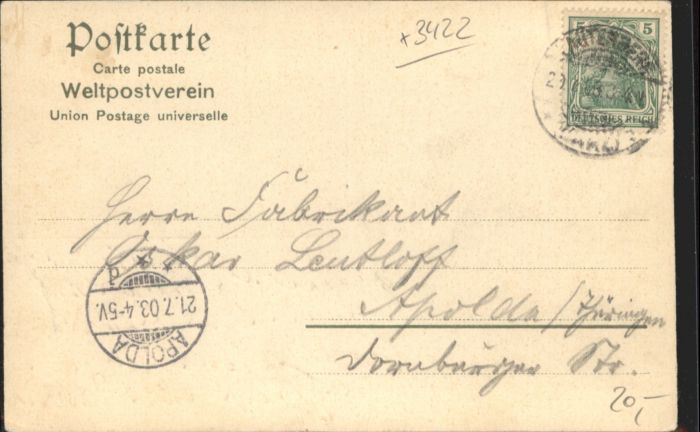 Postkarte
Carte postale
Weltpostverein
Union Postage universelle
+3422
5 5
DEUTSCHES REICH
(HARZ)
Herrn Fabrikant
Oskar Leutloff
Apolda/Thüringen
Dornburger Str.
APOLDA
21.7.03.4-5V.
20,-